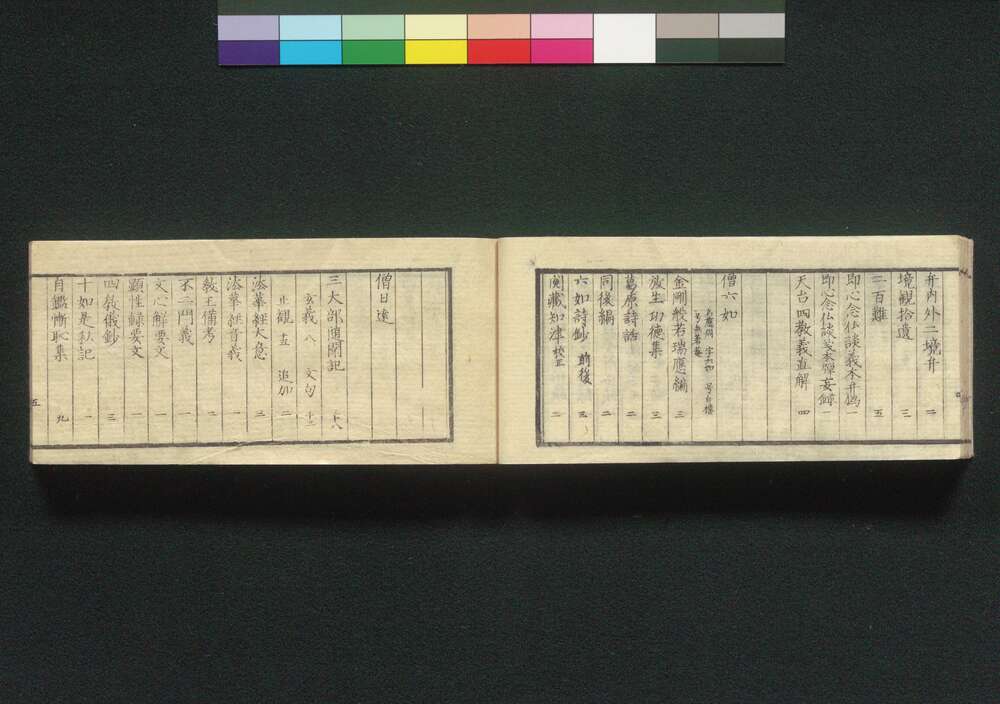 弁内外二境弁 二
境観拾遺 三
一百難 五
即心念仏談義本弁偽 一
即心念仏談義本弾妄録 一
天台四教義直解 四
僧六如
名慈周 字六如 号白楼
号無着菴
金剛般若瑞應編 三
放生功德集 三
葛原詩話 二
同後編 二
六如詩鈔 前後 三
閲藏知津 校正 二
僧日達
三大部追聞記 十八
玄義 八 文句 十三
止観 十五 追加 二
法華經大意 三
法華經音義 一
教王備考 二
不二門義 一
文心解要文 一
顕性録要文 一
四教儀鈔 三
十如是私記 一
自鑑慚恥集 九
五